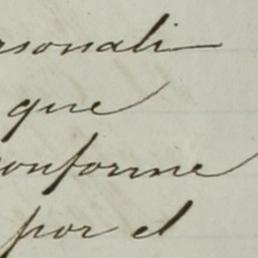 rsonali
que
conforme
por el